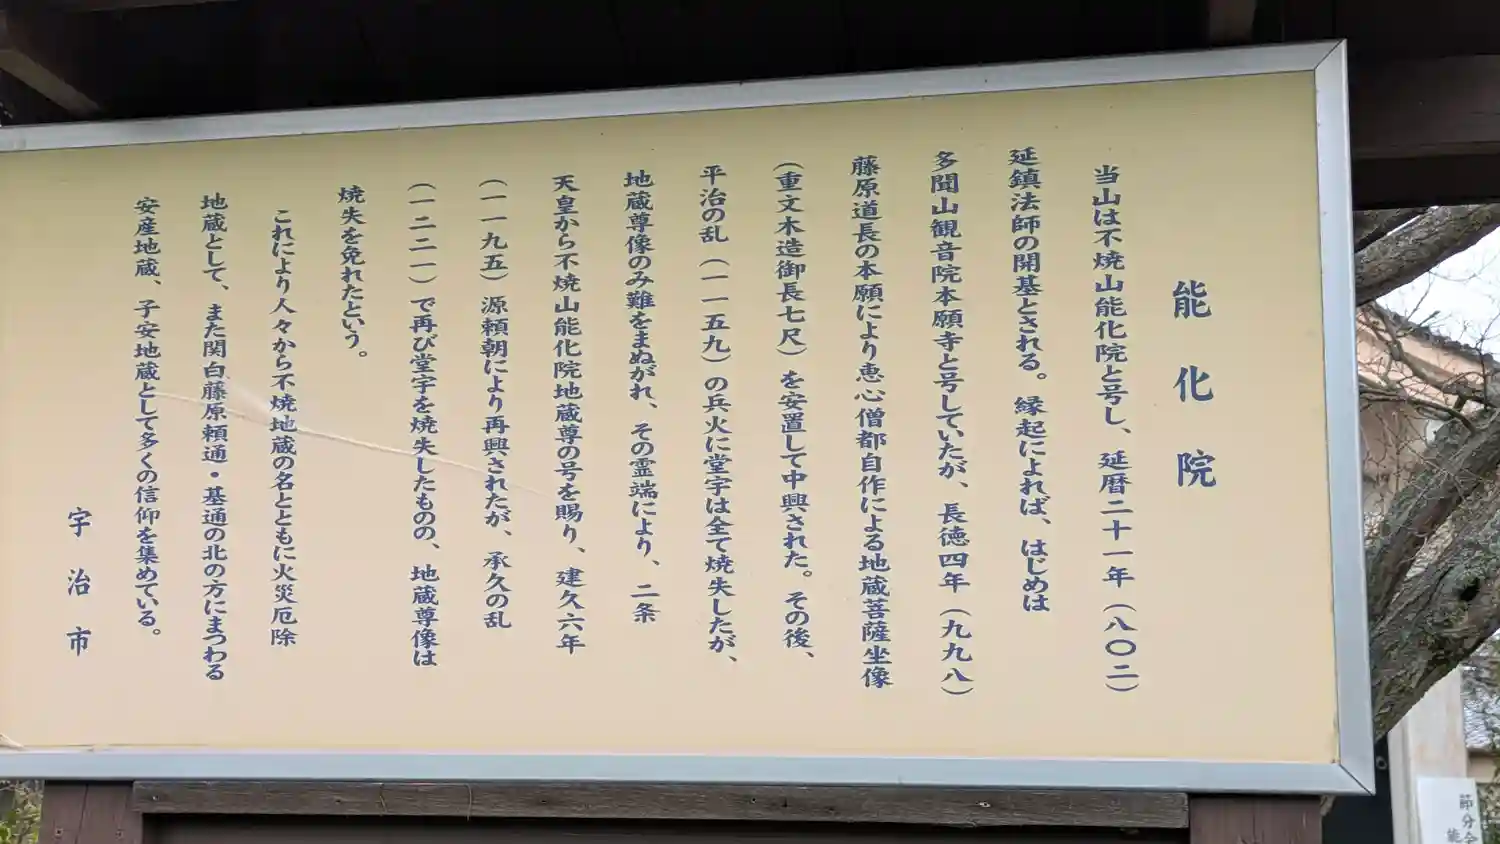 能化院
当山は不焼山能化院と号し、延暦二十一年(八〇二)
延鎮法師の開基とされる。縁起によれば、はじめは
多聞山観音院本願寺と号していたが、長徳四年(九九八)
藤原道長の本願により恵心僧都自作による地蔵菩薩坐像
(重文木造御長七尺)を安置して中興された。その後、
平治の乱(一一五九)の兵火に堂宇は全て焼失したが、
地蔵尊像のみ難をまぬがれ、その霊端により、二条
天皇から不焼山能化院地蔵尊の号を賜り、建久六年
(一一九五)源頼朝により再興されたが、承久の乱
(一二二一)で再び堂宇を焼失したものの、地蔵尊像は
焼失を免れたという。
これにより人々から不焼地蔵の名とともに火災厄除
地蔵として、また関白藤原頼通・基通の北の方にまつわる
安産地蔵、子安地蔵として多くの信仰を集めている。
宇治市
節分会
能